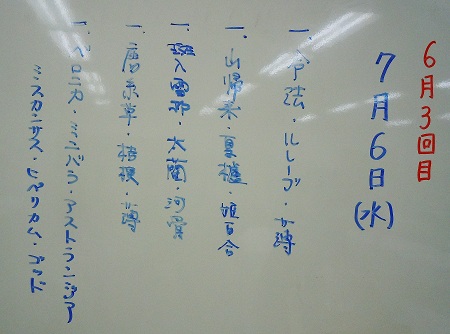 6月3回目
7月6日(水)
一、令法・ルレーブ・
一、山帰来・夏櫨・姫百合
一、斑入・太藺・河骨
一、唐糸草・桔梗・
一、ベロニカ・ミニバラ・アストランシア
ミスカンサス・ヒペリカム・ゴッド